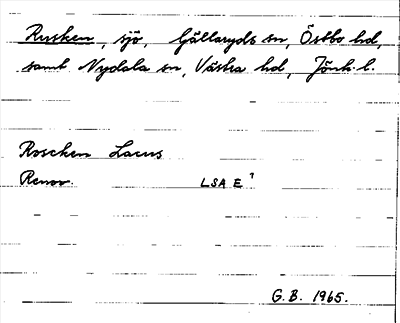 Rusken, sjö, Gällaryds sn, Östbo hd,
samt Nydala sn, Västra hd, Jönk. l.
Roscken Lacus
Renov. LSA E 1
G.B. 1965.